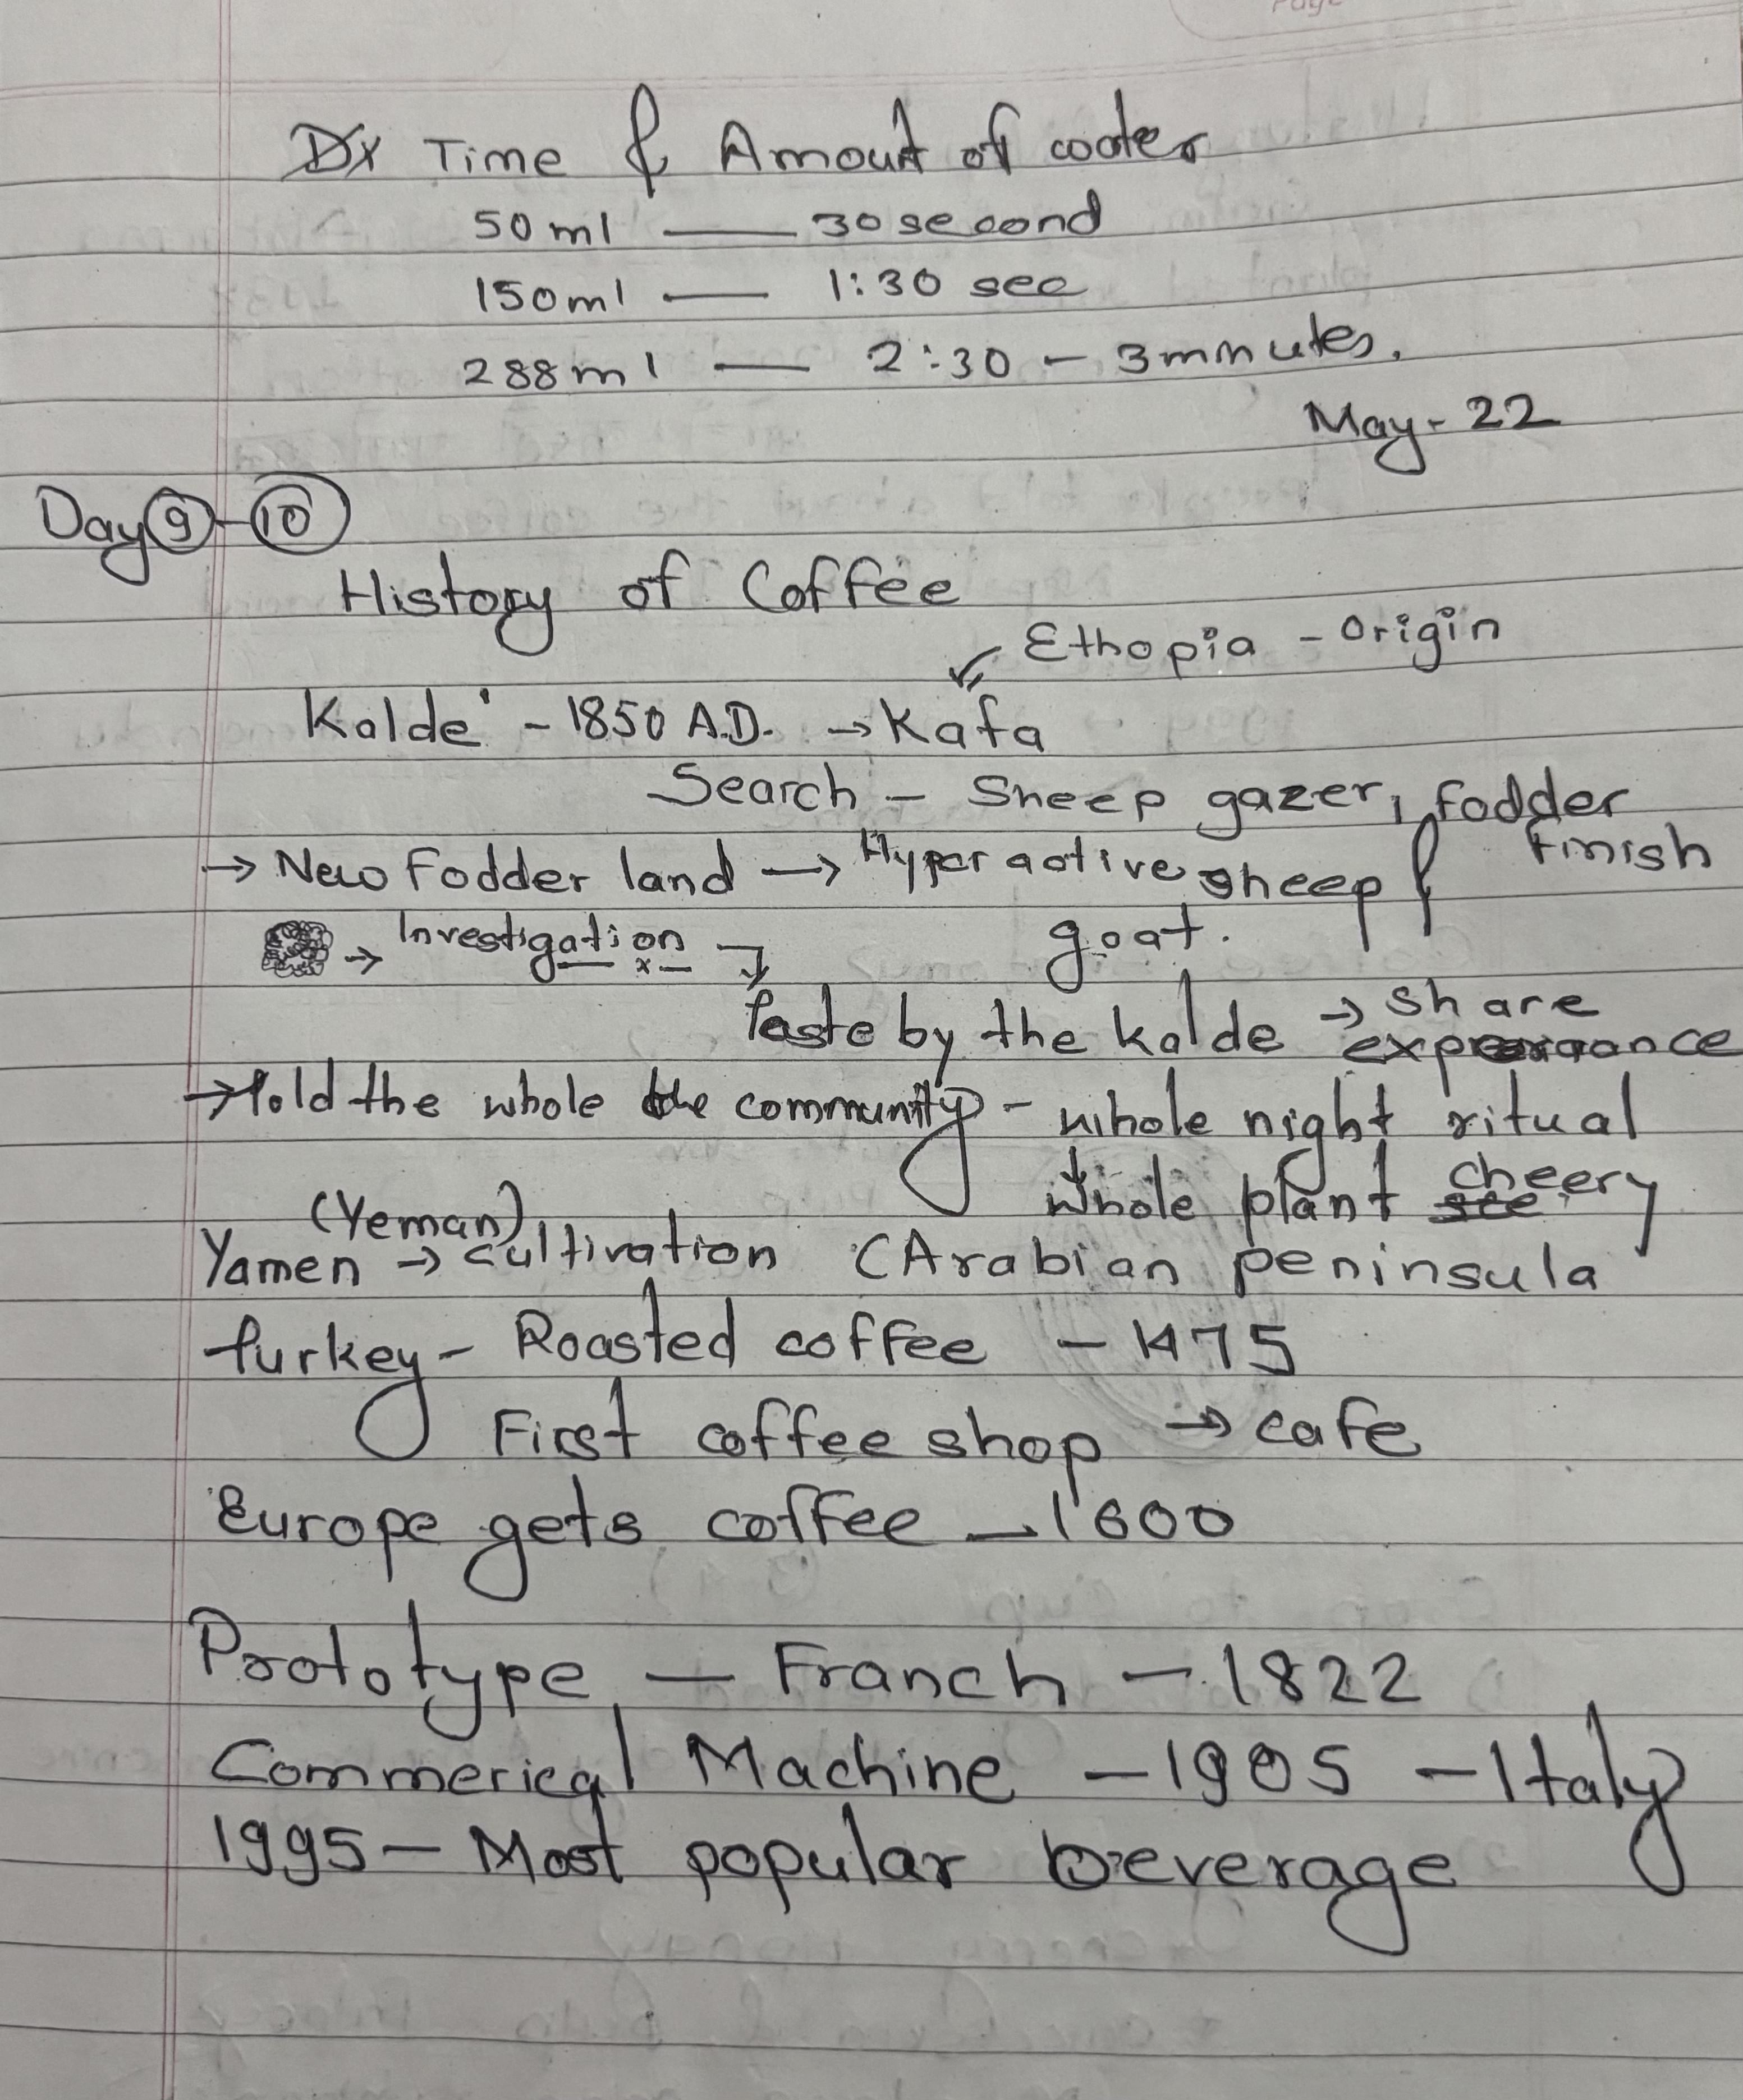 Time & Amount of water
50ml — 30second
150ml — 1:30 sec
288ml — 2:30 - 3minutes.
May-22
Day 9-10
History of Coffee
Ethopia - Origin
Kalde' - 1850 A.D. → Kafa
Search - Sheep gazer, fodder
finish
→ New Fodder land → Hyper active sheep &
goat.
→ Investigation
Taste by the Kalde → share
→ Told the whole the community - whole night ritual
whole plant cheery
(Yeman)
Yamen → cultivation (Arabian peninsula
Turkey - Roasted coffee - 1475
First coffee shop → cafe
Europe gets coffee - 1600
Prototype - Franch - 1822
Commerical Machine - 1905 - Italy
1995 - Most popular beverage